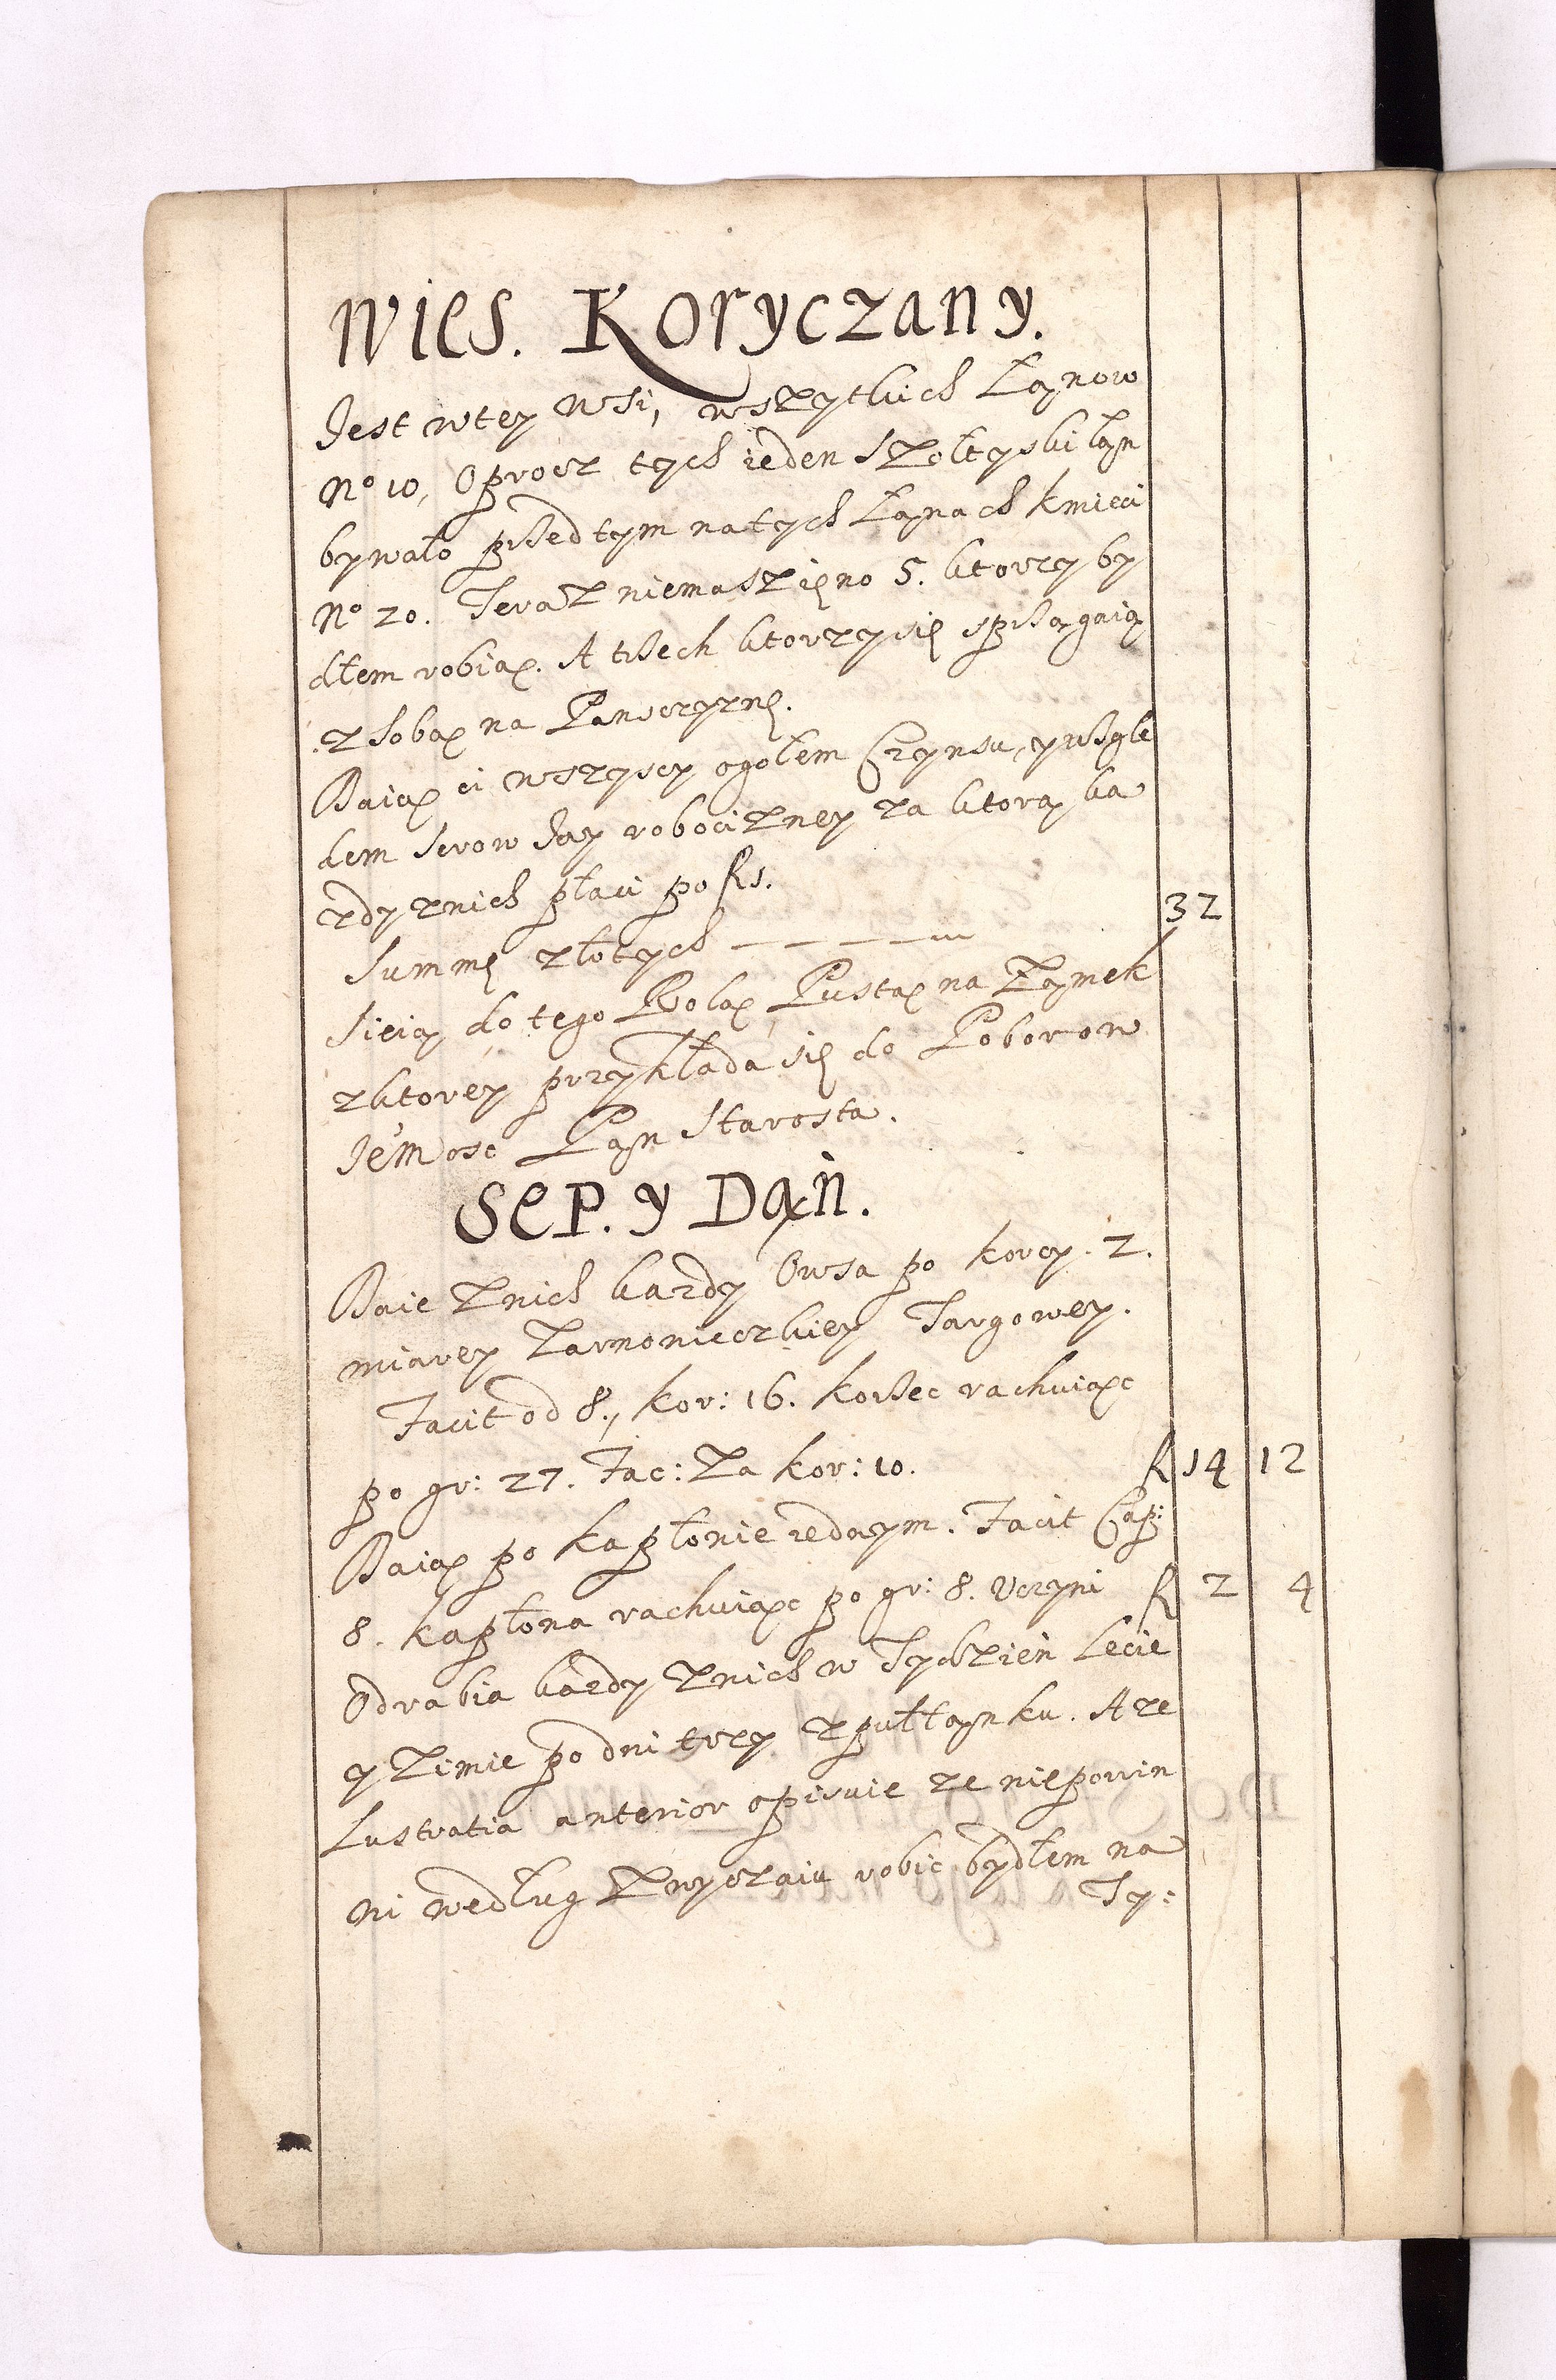 Wies. Koryczany.
Jest w tey Wsi, wszytkich Łanow
No 10, Oprocz tych ieden Szołtyski łan
bywało przedtym na tych Łanach kmieci
No 20. Teraz niemasz ięno 5. ktorzy by
dłem robią. A trzech ktorzy się sprzągaią
z sobą na Panszczyznę.
Daią ci wszyscy ogołem Czynsu, y wzglę
dem Serow Jay robocizney za ktorą ka
zdy z nich płaci po fl 1.
Summę złotych 32
Sieią do tego Rolą Pustą na Zamek
z ktorey przykłada się do Poborow
Jemosc Pan Starosta.
SEP. y DAN.
Daie z nich kazdy Owsa po korcy. 2.
miarey Zarnowieczkiey Targowey.
Facit od 8., kor: 16. korzec rachuiąc
po gr: 27. Fac: za kor: 10. fl 14 12
Daią po kapłonie iednym. Facit Cap:
8. kapłona rachuiąc po gr: 8. Uczyni fl 2 4
Odrabia kazdy z nich w Tydzień Lecie
y Zimie po dni trzy z pułłanku. A ze
Lustratia anterior opisuie ze niepowin
ni według zwyczaiu robic bydłem na
Ty: